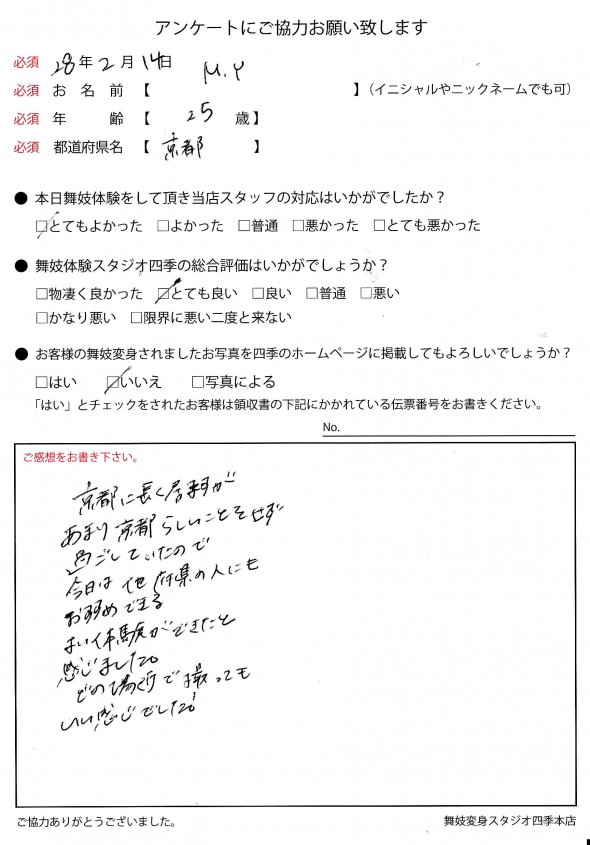 アンケートにご協力お願い致します
必須 28年2月14日
必須 お名前【 M.Y 】(イニシャルやニックネームでも可)
必須 年齢【 25 歳】
必須 都道府県名【 京都 】
● 本日舞妓体験をして頂き当店スタッフの対応はいかがでしたか?
□とてもよかった □よかった □普通 □悪かった □とても悪かった
● 舞妓体験スタジオ四季の総合評価はいかがでしょうか?
□物凄く良かった □とても良い □良い □普通 □悪い
□かなり悪い □限界に悪い二度と来ない
● お客様の舞妓変身されましたお写真を四季のホームページに掲載してもよろしいでしょうか?
□はい □いいえ □写真による
「はい」とチェックをされたお客様は領収書の下記にかかれている伝票番号をお書きください。
No.
ご感想をお書き下さい。
京都に長く居ますが
あまり京都らしいことをせず
過ごしていたので
今日は他府県の人にも
おすすめできる
よい体験ができたと
感じました。
どの場所で撮っても
いい感じでした。
ご協力ありがとうございました。
舞妓変身スタジオ四季本店